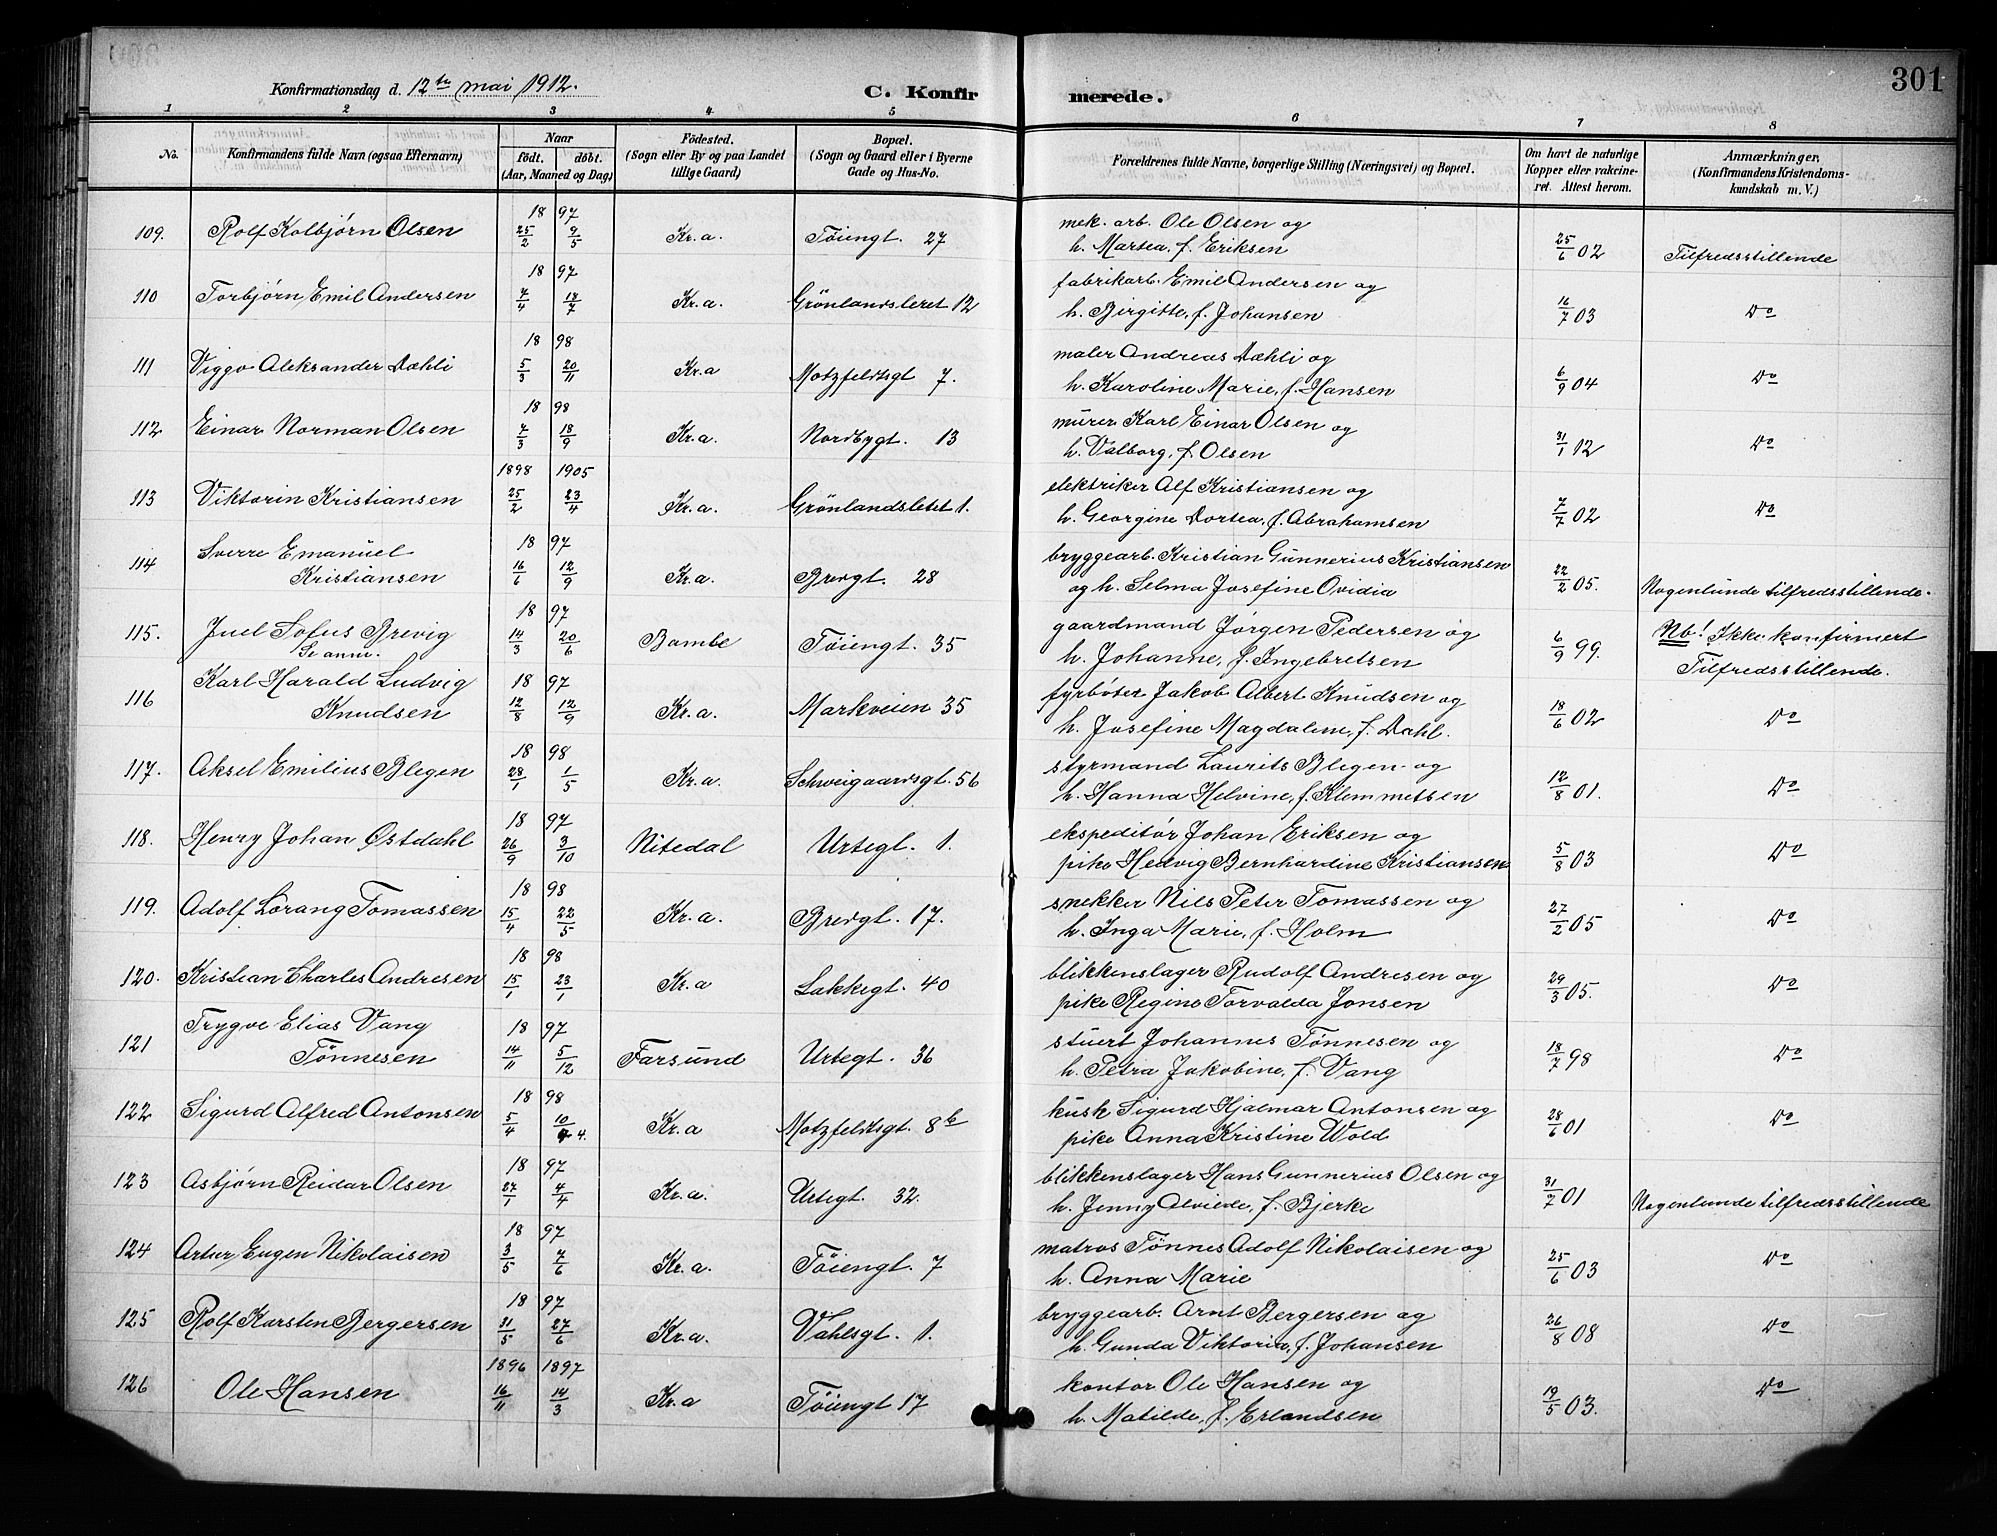 301
Konfirmationsdag d. 12te mai 1912.
C. Konfirmerede.
1 2 3 4 5 6 7 8
No. Konfirmandens fulde Navn (ogsaa Efternavn) Naar født. døbt. (Aar, Maaned og Dag) Fødested. (Sogn eller By og paa Landet tillige Gaard) Bopæl. (Sogn og Gaard eller i Byerne Gade og Hus-No. Forældrenes fulde Navne, borgerlige Stilling (Næringsvei) og Bopæl. Om havt de naturlige Kopper eller vakcineret. Attest herom. Anmærkninger, (Konfirmandens Kristendomskundskab m. V.)
18 97 mek. arb. Ole Olsen og
109. Rolf Kolbjørn Olsen 25/2 9/5 Kr.a. Töiengt. 27 h. Martea, f. Eriksen 25/6 02 Tilfredsstillende
18 97 fabrikarb. Emil Andersen og
110 Torbjørn Emil Andersen 7/4 17/7 Kr.a. Grönlandsleret 12 h. Birgitte, f. Johansen 16/7 03 Do
18 98 maler Andreas Dæhli og
111 Viggo Aleksander Dæhli 5/3 20/11 Kr.a Motzfeldtsgt 7. h. Karoline Marie, f. Hansen 6/9 04 Do
18 98 murer Karl Einar Olsen og
112 Einar Norman Olsen 7/3 18/9 Kr.a. Nordbygt. 13 h. Valborg, f. Olsen 31/1 12 Do
1898 1905 elektriker Alf Kristiansen og
113 Viktorin Kristiansen 25/2 23/4 Kr.a. Grönlandsletet 1. h. Georgine Dortea, f. Abrahamsen 7/7 02 Do
114 Sverre Emanuel 18 97 bryggearb. Kristian Gunnerius Kristiansen
Kristiansen 16/6 12/9 Kr.a. Brevgt. 28 og h. Selma Josefine Ovidia 22/2 05. Nogenlunde tilfredsstillende.
115. Juel Sofus Brevig 18 97 gaardmand Jørgen Pedersen og Nb! Ikke konfirmert
Se anm. 14/3 20/6 Bamble Töiengt. 35 h. Johanne, f. Ingebretsen 6/9 99. Tilfredsstillende.
116 Karl Harald Ludvig 18 97 fyrbøter Jakob Albert Knudsen og
Knudsen 12/8 12/9 Kr.a. Markveien 35 h. Josefine Magdalene, f. Dahl. 18/6 02 Do
18 98 styrmand Laurits Blegen og
117. Aksel Emilius Blegen 28/1 1/5 Kr.a. Schweigaardsgt. 56 h. Hanna Helvine, f. Klemmetsen 12/8 01. Do
18 97 ekspeditør Johan Eriksen og
118. Henry Johan Østdahl 26/9 3/10 Nitedal Urtegt. 1. pike Hedvig Bernhardine Kristiansen 5/8 03 Do
18 98 snekker Nils Peter Tomassen og
119. Adolf Lorang Tomassen 15/4 22/5 Kr.a. Brevgt. 17. h. Inga Marie, f. Holm 27/2 05 Do
18 98 blikkenslager Rudolf Andresen og
120. Kristian Charles Andresen 15/1 23/1 Kr.a Lakkegt. 40 pike Regine Torvalda Jonsen 29/3 05. Do
121 Trygve Elias Vang 18 97 stuert Johannes Tönnesen og
Tönnesen 14/11 5/12 Farsund Urtegt. 36 h. Petra Jakobine, f. Vang 18/7 98 Do
18 98 kusk Sigurd Hjalmar Antonsen og
122 Sigurd Alfred Antonsen 5/4 10/4 4. Kr.a Motzfeldtsgt. 8b pike Anna Kristine Wold 28/6 01 Do
18 97 blikkenslager Hans Gunnerius Olsen og
123 Asbjørn Reidar Olsen 27/1 4/4 Kr.a. Urtegt. 32. h. Jenny Alviede, f. Bjerke 31/7 01 Nogenlunde tilfredsstillende
18 97 matros Tönnes Adolf Nikolaisen og
124 Artur Eugen Nikolaisen 3/5 7/6 Kr.a. Töiengt. 7 h. Anna Marie 25/6 03 Do
18 97 bryggearb. Arnt Bergersen og
125 Rolf Karsten Bergersen 31/5 27/6 Kr.a. Vahlsgt. 1. h. Gunda Viktoria, f. Johansen 26/8 08 Do
1896 1897 kontor Ole Hansen og
126 Ole Hansen 16/11 14/3 Kr.a Töiengt 17 h. Matilde, f. Erlandsen 19/5 03. Do